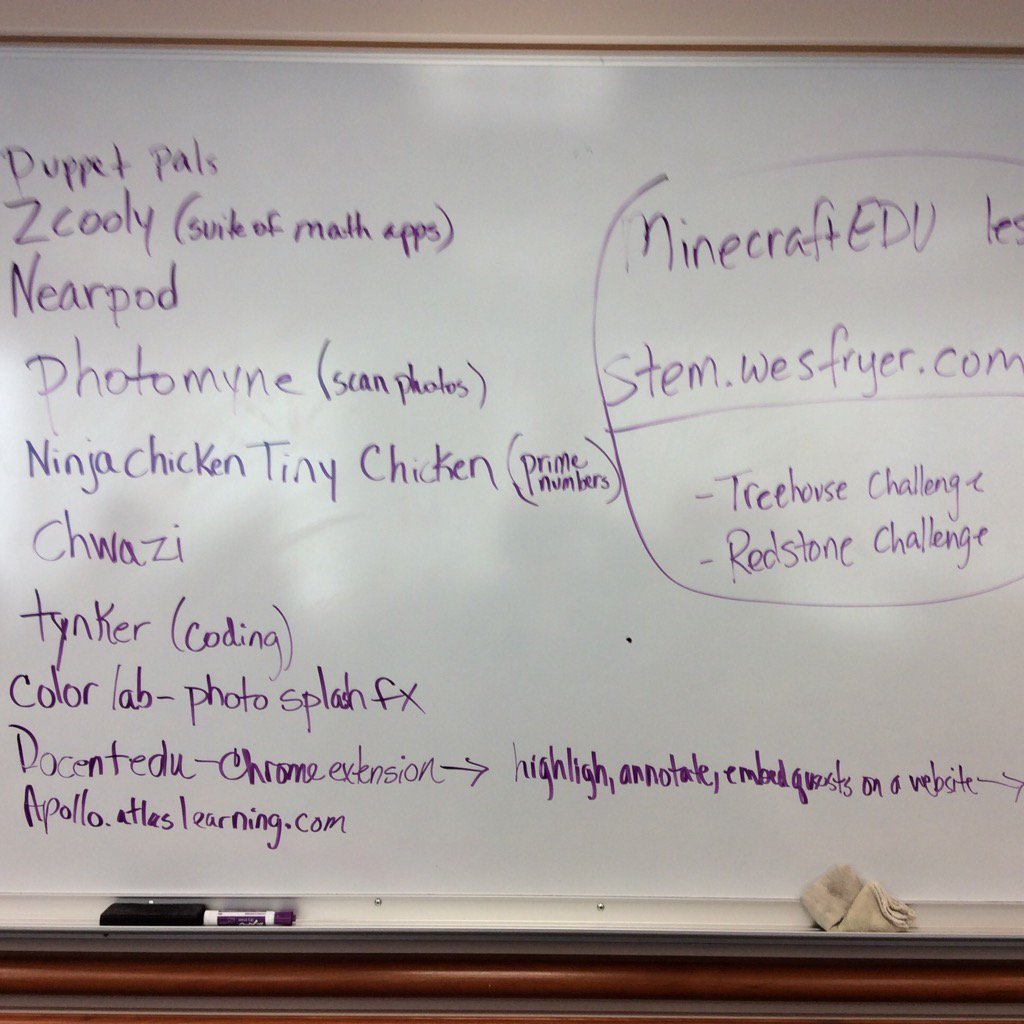 Puppet Pals
Zcooly (suite of math apps)
Nearpod
Photomyne (scan photos)
Ninjachicken Tiny Chicken (prime numbers)
Chwazi
tynker (coding)
Color lab - photo splash fx
Docentedu - Chrome extension → highligh, annotate, embed quests on a website →
Apollo.atlaslearning.com
MinecraftEDU les
stem.wesfryer.com
- Treehouse Challenge
- Redstone Challenge